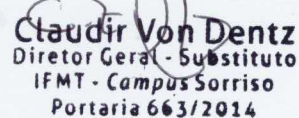 Claudir Von Dentz
Diretor Geral - Substituto
IFMT - Campus Sorriso
Portaria 663/2014